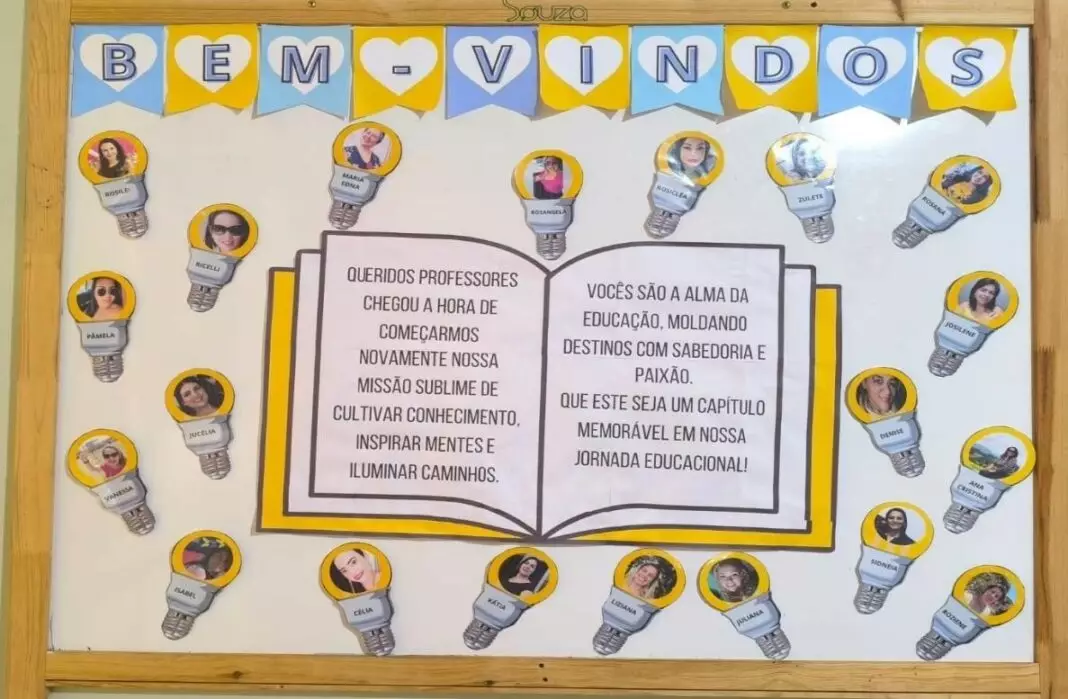 Souza
BEM-VINDOS
ROSILEI
MARIA
EDNA
ROSANGELA
ROSICLÉA
ZULETE
ROSANA
RICELLI
PÂMELA
JOSILENE
QUERIDOS PROFESSORES
CHEGOU A HORA DE
COMEÇARMOS
NOVAMENTE NOSSA
MISSÃO SUBLIME DE
CULTIVAR CONHECIMENTO,
INSPIRAR MENTES E
ILUMINAR CAMINHOS.
VOCÊS SÃO A ALMA DA
EDUCAÇÃO, MOLDANDO
DESTINOS COM SABEDORIA E
PAIXÃO.
QUE ESTE SEJA UM CAPÍTULO
MEMORÁVEL EM NOSSA
JORNADA EDUCACIONAL!
JUCÉLIA
DENISE
VANESSA
ANA
CRISTINA
SIDNÉIA
ISABEL
CÉLIA
KÁTIA
LIZIANA
JULIANA
ROZENE